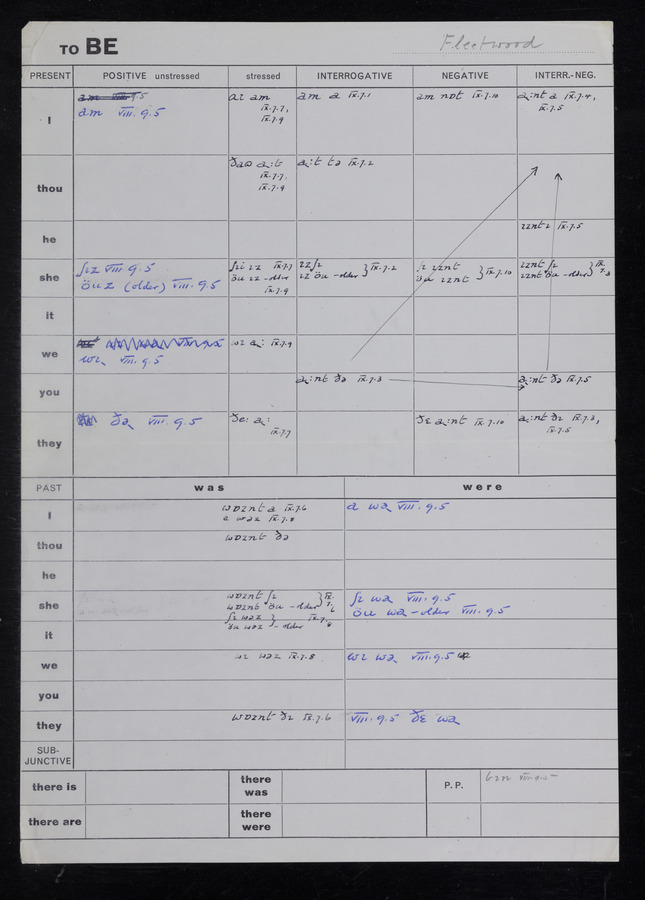 TO BE Fleetwood
PRESENT POSITIVE unstressed stressed INTERROGATIVE NEGATIVE INTERR.-NEG.
am VIII.9.5 aɪ am am a IX.7.1 am nɒt IX.7.10 a:nt a IX.7.4,
I am VIII.9.5 IX.7.7, IX.7.5
IX.7.9
ðaʊ a:t a:t tə IX.7.2
IX.7.7,
thou IX.7.9
he ɪznt ɪ IX.7.5
ʃɪz VIII.9.5 ʃi: ɪz IX.7.7 ɪz ʃɪ ʃɪ ɪznt ɪznt ʃɪ IX.
she öuz (older) VIII.9.5 öu ɪz -older ɪz öu -older } IX.7.2 öu ɪznt } IX.7.10 ɪznt öu -older } 7.3
IX.7.9
it
we wɪ a: IX.7.9
wɪə VIII.9.5
you a:nt ðə IX.7.3 a:nt ðə IX.7.5
they ðə VIII.9.5 ðe: a: ðɛ a:nt IX.7.10 a:nt ðɪ IX.7.3,
IX.7.7 IX.7.5
PAST was were
I wɒznt a IX.7.6 a wə VIII.9.5
a wəz IX.7.8
thou wɒznt ðə
he
wɒznt ʃɪ IX.
she wɒznt öu -older } 7.6 ʃɪ wə VIII.9.5
ʃɪ wəz IX.7.8 öu wə -older VIII.9.5
it öu wəz } -older
we wɪ wəz IX.7.8 wɪ wə VIII.9.5
you
they wɒznt ðɪ IX.7.6 VIII.9.5 ðɛ wə
SUB-
JUNCTIVE
there is there was P.P. bɪn VIII.9.5
there are there were